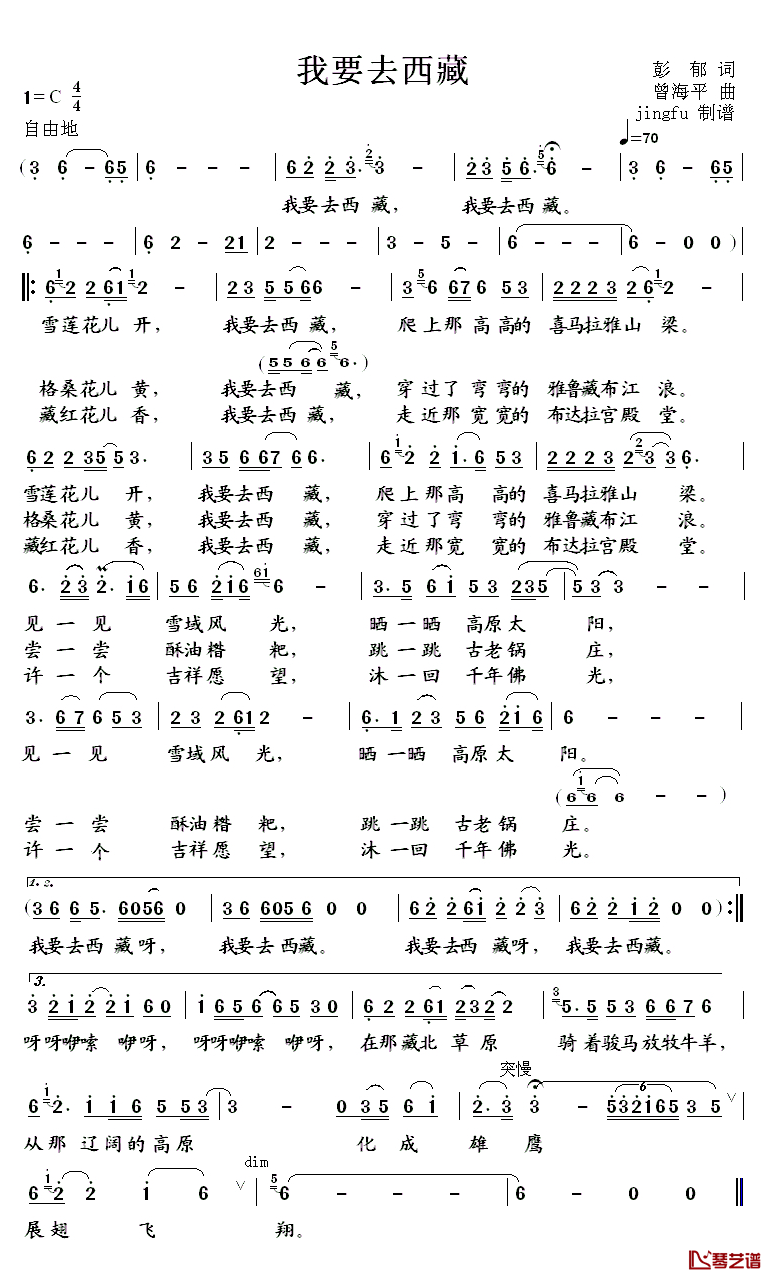 我要去西藏
彭 郁 词
1=C 4/4
曾海平 曲
jingfu 制谱
自由地
♩=70
我要去西 藏， 我要去西 藏。
雪莲花儿 开， 我要去西 藏， 爬上那高 高的 喜马拉雅山 梁。
格桑花儿 黄， 我要去西 藏， 穿过了弯 弯的 雅鲁藏布江 浪。
藏红花儿 香， 我要去西 藏， 走近那宽 宽的 布达拉宫殿 堂。
雪莲花儿 开， 我要去西 藏， 爬上那高 高的 喜马拉雅山 梁。
格桑花儿 黄， 我要去西 藏， 穿过了弯 弯的 雅鲁藏布江 浪。
藏红花儿 香， 我要去西 藏， 走近那宽 宽的 布达拉宫殿 堂。
见一见 雪域风 光， 晒一晒 高原太 阳，
尝一尝 酥油糌 粑， 跳一跳 古老锅 庄，
许一个 吉祥愿 望， 沐一回 千年佛 光，
见一见 雪域风 光， 晒一晒 高原太 阳。
尝一尝 酥油糌 粑， 跳一跳 古老锅 庄。
许一个 吉祥愿 望， 沐一回 千年佛 光。
1. 2.
我要去西 藏呀， 我要去 西藏。 我要去西 藏呀， 我要去西藏。
3.
呀呀咿嗦 咿呀， 呀呀咿嗦 咿呀， 在那藏北 草 原 骑着骏马放牧牛羊，
突慢
从那 辽阔的高原 化成 雄 鹰
dim
展翅 飞 翔。
琴艺谱